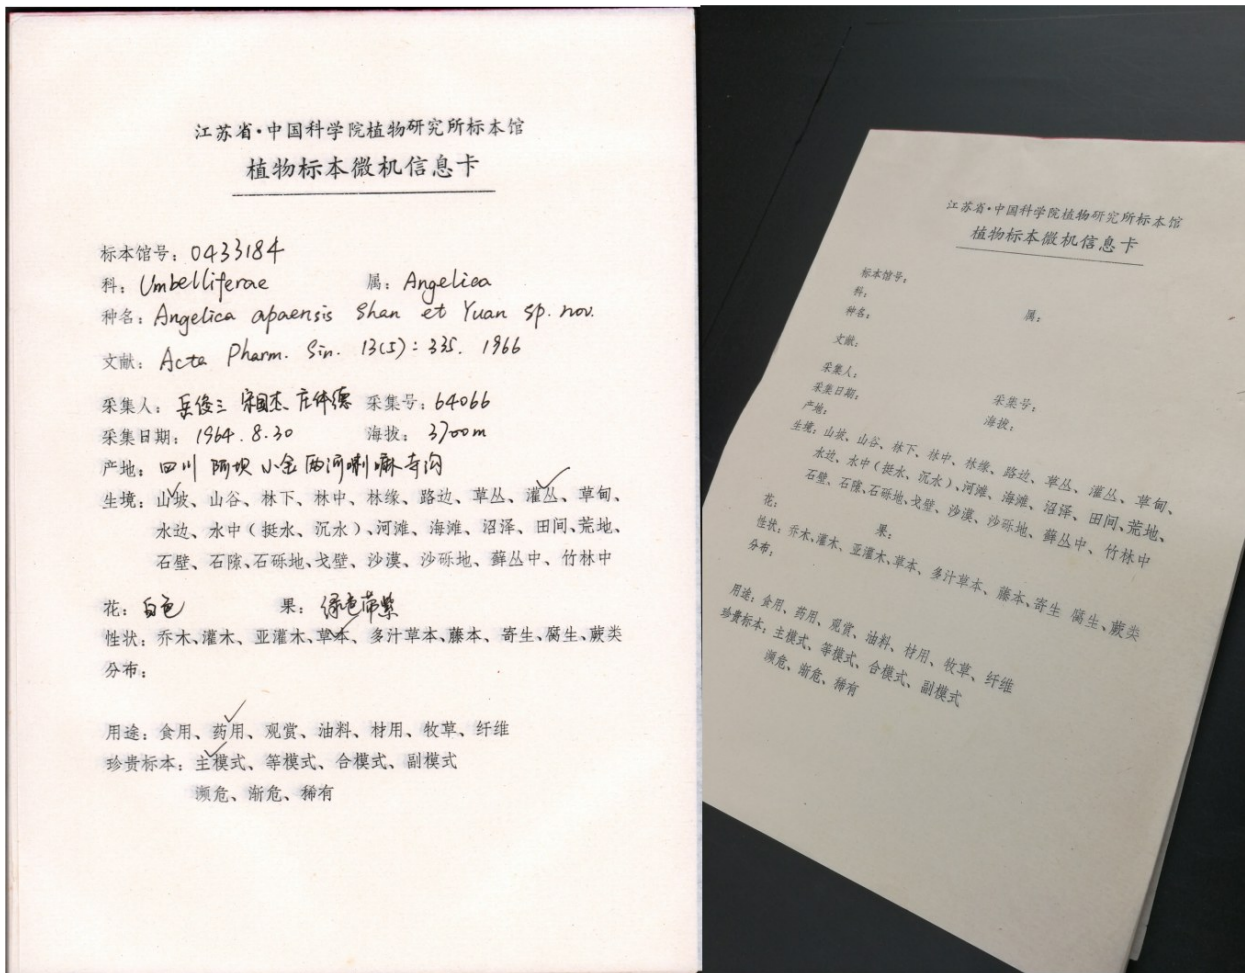 江苏省·中国科学院植物研究所标本馆
植物标本微机信息卡
标本馆号：0433184
科：Umbelliferae 属：Angelica
种名：Angelica apaensis Shan et Yuan sp. nov.
文献：Acta Pharm. Sin. 13(5)：335. 1966
采集人：岳俊三 宋国杰、庄体德 采集号：64066
采集日期：1964.8.30 海拔：3700m
产地：四川 阿坝 小金 两河喇嘛寺沟
生境：山坡、山谷、林下、林中、林缘、路边、草丛、灌丛、草甸、
水边、水中（挺水、沉水）、河滩、海滩、沼泽、田间、荒地、
石壁、石隙、石砾地、戈壁、沙漠、沙砾地、藓丛中、竹林中
花：白色 果：绿色带紫
性状：乔木、灌木、亚灌木、草本、多汁草本、藤本、寄生、腐生、蕨类
分布：
用途：食用、药用、观赏、油料、材用、牧草、纤维
珍贵标本：主模式、等模式、合模式、副模式
濒危、渐危、稀有
江苏省·中国科学院植物研究所标本馆
植物标本微机信息卡
标本馆号：
科： 属：
种名：
文献：
采集人： 采集号：
采集日期： 海拔：
产地：
生境：山坡、山谷、林下、林中、林缘、路边、草丛、灌丛、草甸、
水边、水中（挺水、沉水）、河滩、海滩、沼泽、田间、荒地、
石壁、石隙、石砾地、戈壁、沙漠、沙砾地、藓丛中、竹林中
花： 果：
性状：乔木、灌木、亚灌木、草本、多汁草本、藤本、寄生 腐生、蕨类
分布：
用途：食用、药用、观赏、油料、材用、牧草、纤维
珍贵标本：主模式、等模式、合模式、副模式
濒危、渐危、稀有